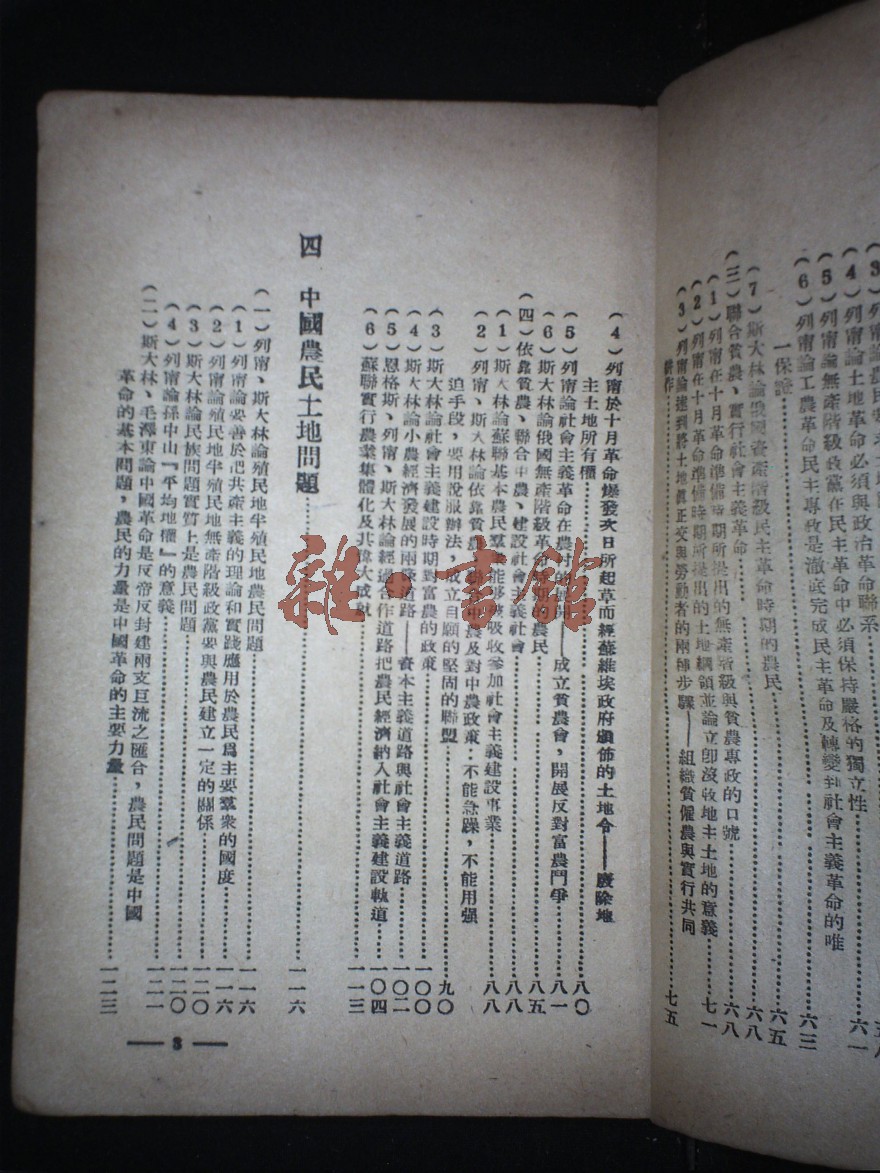 （4）列甯論土地革命必須與政治革命聯系
六一
（5）列甯論無產階級政黨在民主革命中必須保持嚴格的獨立性
六三
（6）列甯論工農革命民主專政是澈底完成民主革命及轉變到社會主義革命的唯
一保證
六五
（7）斯大林論俄國資產階級民主革命時期的農民
六八
（三）聯合貧農、實行社會主義革命
六八
（1）列甯在十月革命準備時期所提出的無產階級與貧農專政的口號
（2）列甯在十月革命準備時期所提出的土地綱領並論立卽沒收地主土地的意義
七一
（3）列甯論達到將土地眞正交與勞動者的兩種步驟——組織貧僱農與實行共同
耕作
七五
（4）列甯於十月革命爆發次日所起草而經蘇維埃政府頒佈的土地令——廢除地
主土地所有權
八〇
（5）列甯論社會主義革命在農村的展開——成立貧農會，開展反對富農鬥爭
八一
（6）斯大林論俄國無產階級革命時期的農民
八五
（四）依靠貧農、聯合中農、建設社會主義社會
八八
（1）斯大林論蘇聯基本農民羣衆能够被吸收參加社會主義建設事業
八八
（2）列甯、斯大林論依靠貧農聯合中農及對中農政策：不能急躁，不能用强
迫手段，要用說服辦法，成立自願的堅固的聯盟
九〇
（3）斯大林論社會主義建設時期對富農的政策
一〇〇
（4）斯大林論小農經濟發展的兩條道路——資本主義道路與社會主義道路
一〇二
（5）恩格斯、列甯、斯大林論經過合作道路把農民經濟納入社會主義建設軌道
一〇四
（6）蘇聯實行農業集體化及其偉大成就
一一三
四 中國農民土地問題
一一六
（一）列甯、斯大林論殖民地半殖民地農民問題
一一六
（1）列甯論要善於把共產主義的理論和實踐應用於農民爲主要羣衆的國度
一一六
（2）列甯論殖民地半殖民地無產階級政黨要與農民建立一定的關係
一二〇
（3）斯大林論民族問題實質上是農民問題
一二〇
（4）列甯論孫中山『平均地權』的意義
一二一
（二）斯大林、毛澤東論中國革命是反帝反封建兩支巨流之匯合，農民問題是中國
革命的基本問題，農民的力量是中國革命的主要力量
一二三
— 3 —
雜·書館